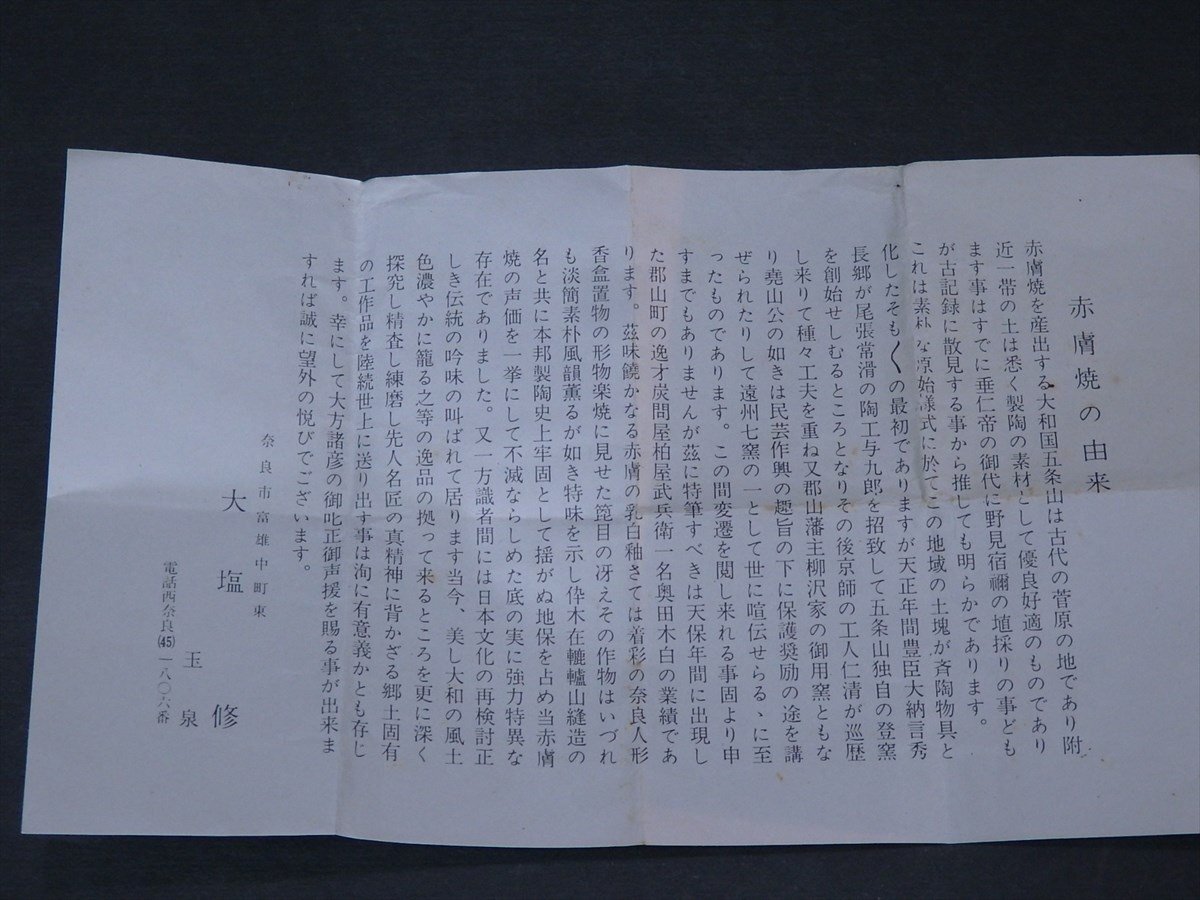 赤膚焼の由来
赤膚焼を産出する大和国五条山は古代の菅原の地であり附
近一帯の土は悉く製陶の素材として優良好適のものであり
ます事はすでに垂仁帝の御代に野見宿禰の埴採りの事ども
が古記録に散見する事から推しても明らかであります。
これは素朴な原始様式に於てこの地域の土塊が斉陶物具と
化したそも〱の最初でありますが天正年間豊臣大納言秀
長郷が尾張常滑の陶工与九郎を招致して五条山独自の登窯
を創始せしむるところとなりその後京師の工人仁清が巡歴
し来りて種々工夫を重ね又郡山藩主柳沢家の御用窯ともな
り堯山公の如きは民芸作興の趣旨の下に保護奨励の途を講
ぜられたりして遠州七窯の一として世に喧伝せらるゝに至
ったものであります。この間変遷を閲し来れる事固より申
すまでもありませんが茲に特筆すべきは天保年間に出現し
た郡山町の逸才炭問屋柏屋武兵衛一名奥田木白の業績であ
ります。茲味饒かなる赤膚の乳白釉さては着彩の奈良人形
香盒置物の形物楽焼に見せた箆目の冴えその作物はいづれ
も淡簡素朴風韻薫るが如き特味を示し伜木在轆轤山縫造の
名と共に本邦製陶史上牢固として揺がぬ地保を占め当赤膚
焼の声価を一挙にして不滅ならしめた底の実に強力特異な
存在でありました。又一方識者間には日本文化の再検討正
しき伝統の吟味の叫ばれて居ります当今、美し大和の風土
色濃やかに籠る之等の逸品の拠って来るところを更に深く
探究し精査し練磨し先人名匠の真精神に背かざる郷土固有
の工作品を陸続世上に送り出す事は洵に有意義かとも存じ
ます。幸にして大方諸彦の御叱正御声援を賜る事が出来ま
すれば誠に望外の悦びでございます。
奈良市富雄中町東
大塩 玉泉 修
電話西奈良(45)一八〇六番